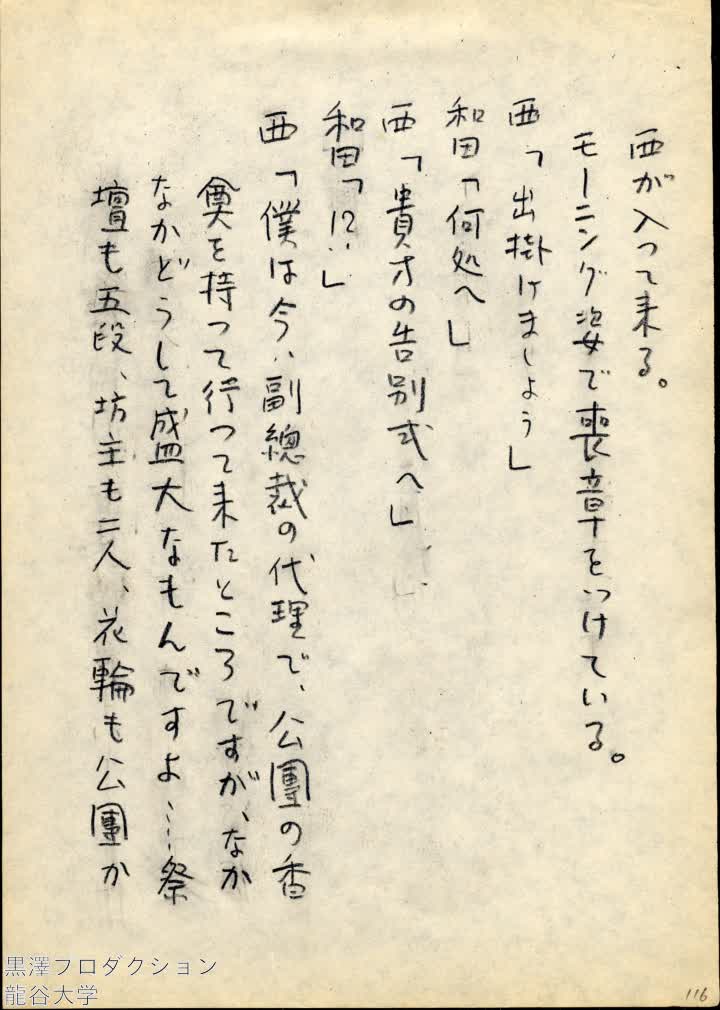 西が入って来る。
モーニング姿で喪章をつけている。
西「出掛けましょう」
和田「何処へ」
西「貴方の告別式へ」
和田「!?」
西「僕は今、副總裁の代理で、公團の香
奠を持って行って来たところですが、なか
なかどうして盛大なもんですよ…祭
壇も五段、坊主も二人、花輪も公團か
116
黒澤プロダクション
龍谷大学